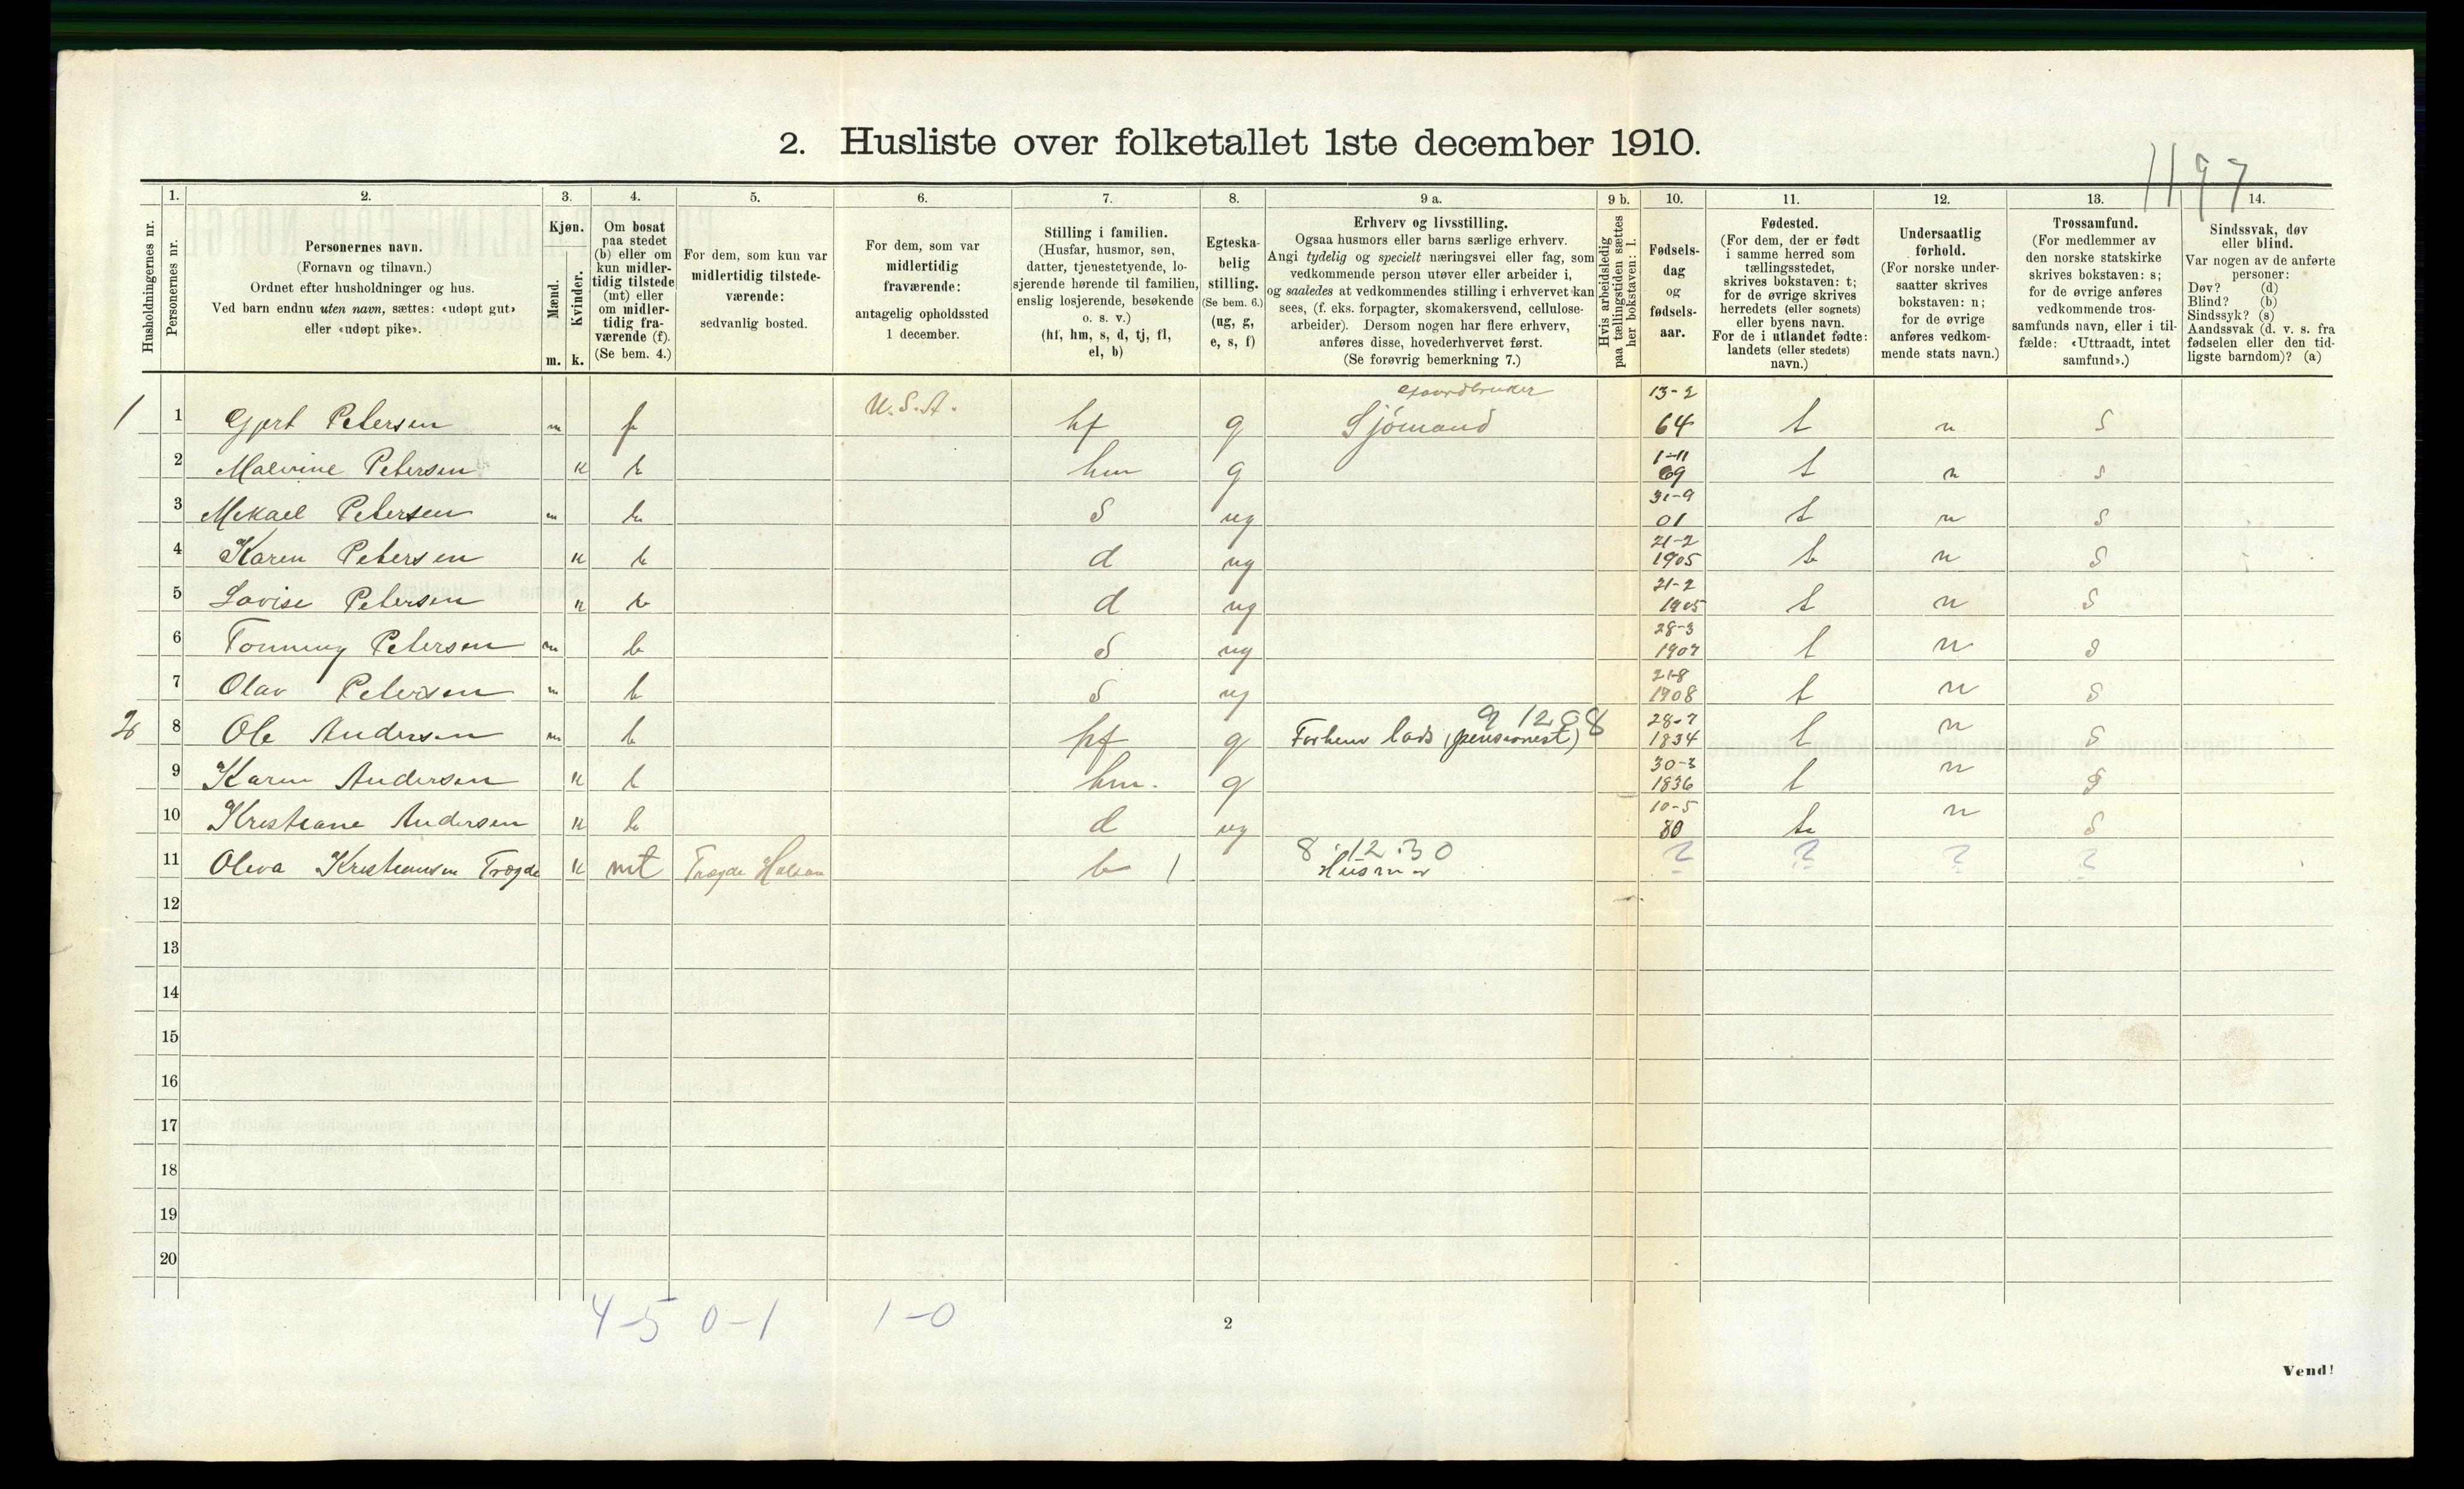 2. Husliste over folketallet 1ste december 1910.
1197
Husholdningernes nr.
1. Personernes nr.
2. Personernes navn.
(Fornavn og tilnavn.)
Ordnet efter husholdninger og hus.
Ved barn endnu uten navn, sættes: «udøpt gut»
eller «udøpt pike».
3. Kjøn.
Mænd. m.
Kvinder. k.
4. Om bosat
paa stedet
(b) eller om
kun midler-
tidig tilstede
(mt) eller
om midler-
tidig fra-
værende (f).
(Se bem. 4.)
5. For dem, som kun var
midlertidig tilstede-
værende:
sedvanlig bosted.
6. For dem, som var
midlertidig
fraværende:
antagelig opholdssted
1 december.
7. Stilling i familien.
(Husfar, husmor, søn,
datter, tjenestetyende, lo-
sjerende hørende til familien,
enslig losjerende, besøkende
o. s. v.)
(hf, hm, s, d, tj, fl,
el, b)
8. Egteska-
belig
stilling.
(Se bem. 6.)
(ug, g,
e, s, f)
9 a. Erhverv og livsstilling.
Ogsaa husmors eller barns særlige erhverv.
Angi tydelig og specielt næringsvei eller fag, som
vedkommende person utøver eller arbeider i,
og saaledes at vedkommendes stilling i erhvervet kan
sees, (f. eks. forpagter, skomakersvend, cellulose-
arbeider). Dersom nogen har flere erhverv,
anføres disse, hovederhvervet først.
(Se forøvrig bemerkning 7.)
9 b. Hvis arbeidsledig
paa tællingstiden sættes
her bokstaven: l.
10. Fødsels-
dag
og
fødsels-
aar.
11. Fødested.
(For dem, der er født
i samme herred som
tællingsstedet,
skrives bokstaven: t;
for de øvrige skrives
herredets (eller sognets)
eller byens navn.
For de i utlandet fødte:
landets (eller stedets)
navn.)
12. Undersaatlig
forhold.
(For norske under-
saatter skrives
bokstaven: n;
for de øvrige
anføres vedkom-
mende stats navn.)
13. Trossamfund.
(For medlemmer av
den norske statskirke
skrives bokstaven: s;
for de øvrige anføres
vedkommende tros-
samfunds navn, eller i til-
fælde: «Uttraadt, intet
samfund».)
14. Sindssvak, døv
eller blind.
Var nogen av de anførte
personer:
Døv? (d)
Blind? (b)
Sindssyk? (s)
Aandssvak (d. v. s. fra
fødselen eller den tid-
ligste barndom)? (a)
1 1 Gjert Petersen m f U.S.A. hf g Sjömand 13-2 64 t n s
2 Malvine Petersen k b hm g 1-11 69 t n s
3 Mekael Petersen m b s ug 31-9 01 t n s
4 Karen Petersen k b d ug 21-2 1905 t n s
5 Lovise Petersen k b d ug 21-2 1905 t n s
6 Tonning Petersen m b s ug 28-3 1907 t n s
7 Olav Petersen m b s ug 21-8 1908 t n s
2 8 Ole Andersen m b hf g Forhenv lods (pensionest) 28-7 1834 t n s
9 Karen Andersen k b hm. g 30-3 1836 t n s
10 Kresteane Andersen k b d ug 10-5 80 t n s
11 Oleva Kresteansen Trogde k mt b 8.12.30 ? ? ? ?
12
13
14
15
16
17
18
19
20
4-5 0-1 1-0
2
Vend!